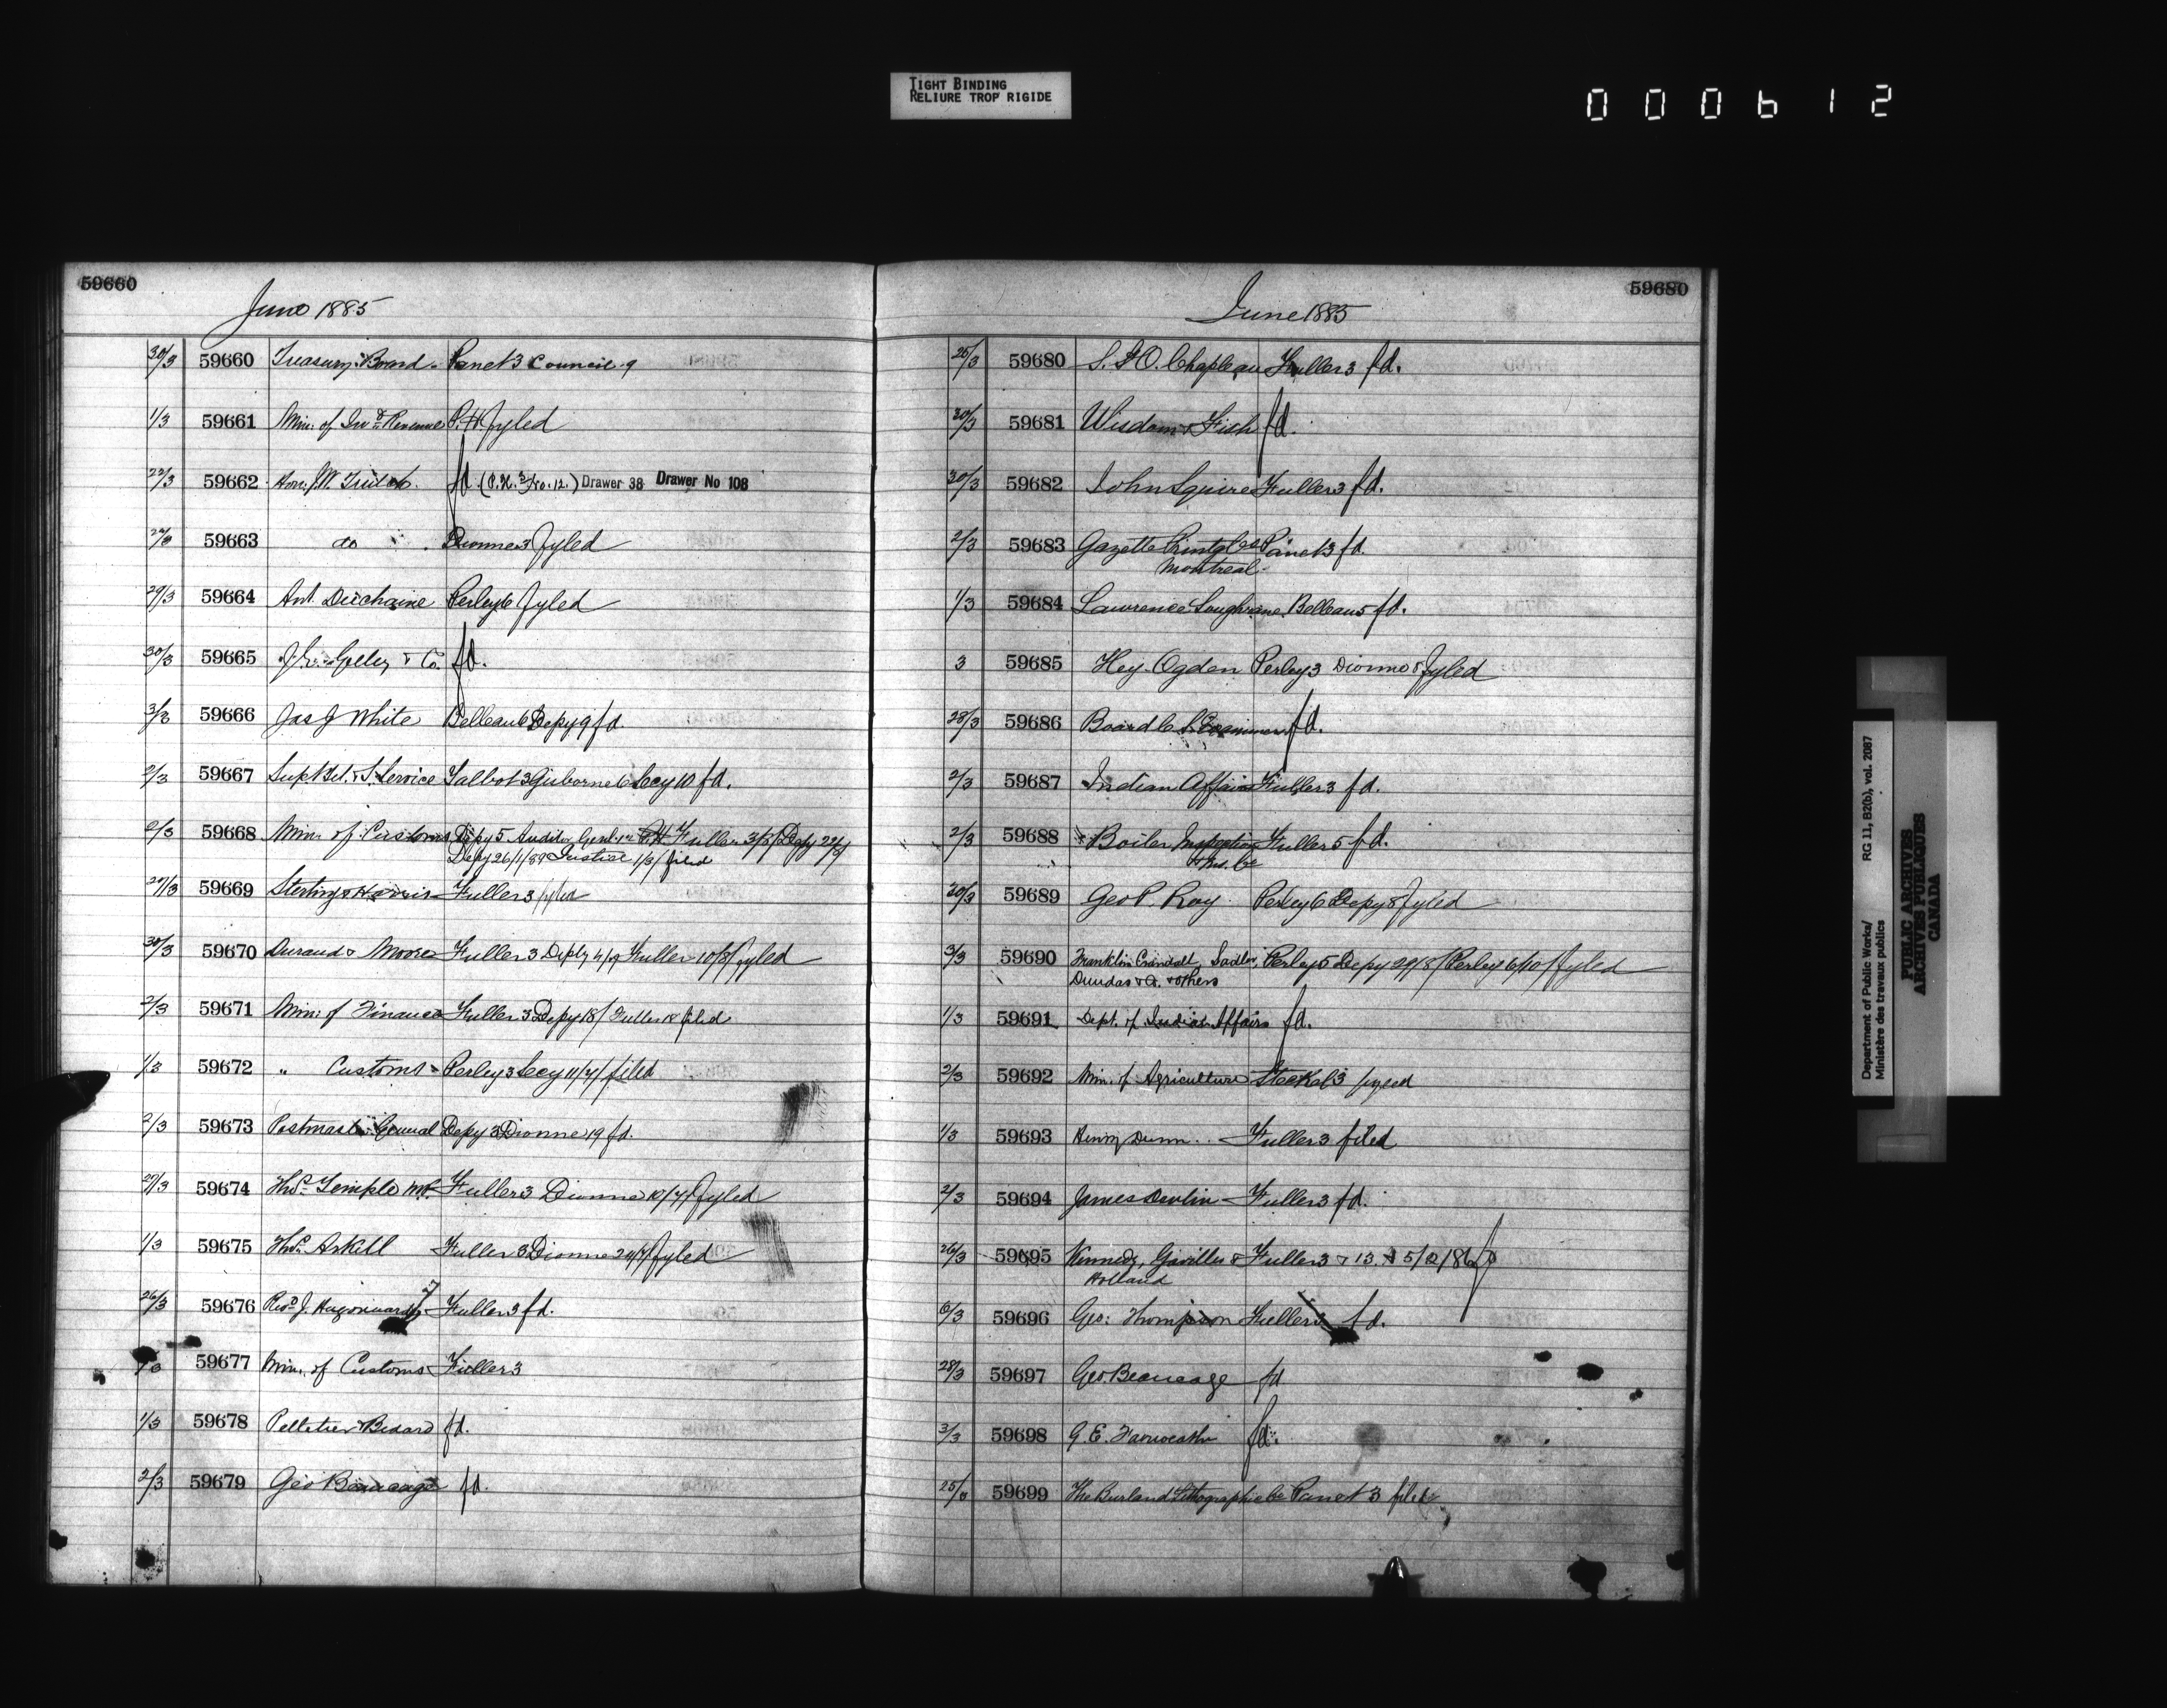 TIGHT BINDING
RELIURE TROP RIGIDE
000612
59660
June 1885
30/3 59660 Treasury Board Panet 3 Council 9
1/3 59661 Min. of Ind Revenue P.H. fyled
22/3 59662 Hon. J.W. Trutch fd. (P.H. No. 12.) Drawer 38 Drawer No 108
59663 do Dionne 3 fyled
29/3 59664 Ant. Duchaine Perley 6 fyled
30/3 59665 & Co. fd.
3/3 59666 Jas J White Belleau 6 Depy 9 fd
2/3 59667 Supt Tel. & S. Service Talbot 3 Gisborne 6 Secy 10 fd.
2/3 59668 Min. of Customs Depy 5 Auditor Genl P.H. Fuller 3/8/ Depy
Depy 26/1/89 Justice 1/3/ filed
29/3 59669 Sterling & Harris Fuller 3 fyled
30/3 59670 Durand & Moore Fuller 3 Depty 4/9 Fuller 10/8/ fyled
2/3 59671 Min: of Finance Fuller 3 Depy 18/ Fuller 18 filed
1/3 59672 " Customs Perley 3 Secy 11/7/ filed
2/3 59673 Postmaster General Depy 3 Dionne 19 fd.
29/3 59674 Thos. Temple M.P. Fuller 3 Dionne 10/7/ fyled
1/3 59675 Thos. Askell Fuller 3 Dionne 24/7/ fyled
26/3 59676 Revd J. Fuller 3 fd.
59677 Min. of Customs Fuller 3
1/3 59678 Pelletier & Bedard fd.
2/3 59679 Geo Beaucage fd.
59680
June 1885
25/3 59680 S. St O. Chapleau Fuller 3 fd.
30/3 59681 Wisdom & Fish fd.
30/3 59682 John Squire Fuller 3 fd.
2/3 59683 Gazette Printg Co Panet 3 fd.
Montreal
1/3 59684 Lawrence Loughrane Belleau 5 fd.
3 59685 Hey. Ogden Perley 3 Dionne 8 fyled
28/3 59686 Board C. S. Examiners fd.
2/3 59687 Indian Affairs Fuller 3 fd.
2/3 59688 Boiler Inspection Fuller 5 fd.
& Ins. Co
30/3 59689 Geo P. Roy Perley 6 Depy 8 fyled
3/3 59690 Franklin Crandall, Sadler, Perley 5 Depy 29/8/ Perley 6/10/ fyled
Dundas & others
1/3 59691 Dept. of Indian Affairs fd.
2/3 59692 Min. of Agriculture Steckel 3 fyled
1/3 59693 Henry Dunn Fuller 3 filed
2/3 59694 James Devlin Fuller 3 fd.
26/3 59695 Kennedy, Gaviller & Fuller 3 & 13. & 5/2/86 fd
Holland
6/3 59696 Geo: Thompson Fuller 3 fd.
28/3 59697 Geo Beaucage fd
3/3 59698 G. E. fd.
59699 The Burland Lithographic Co Panet 3 filed
Department of Public Works/
Ministère des travaux publics
RG 11, B2(b), vol. 2087
PUBLIC ARCHIVES
ARCHIVES PUBLIQUES
CANADA